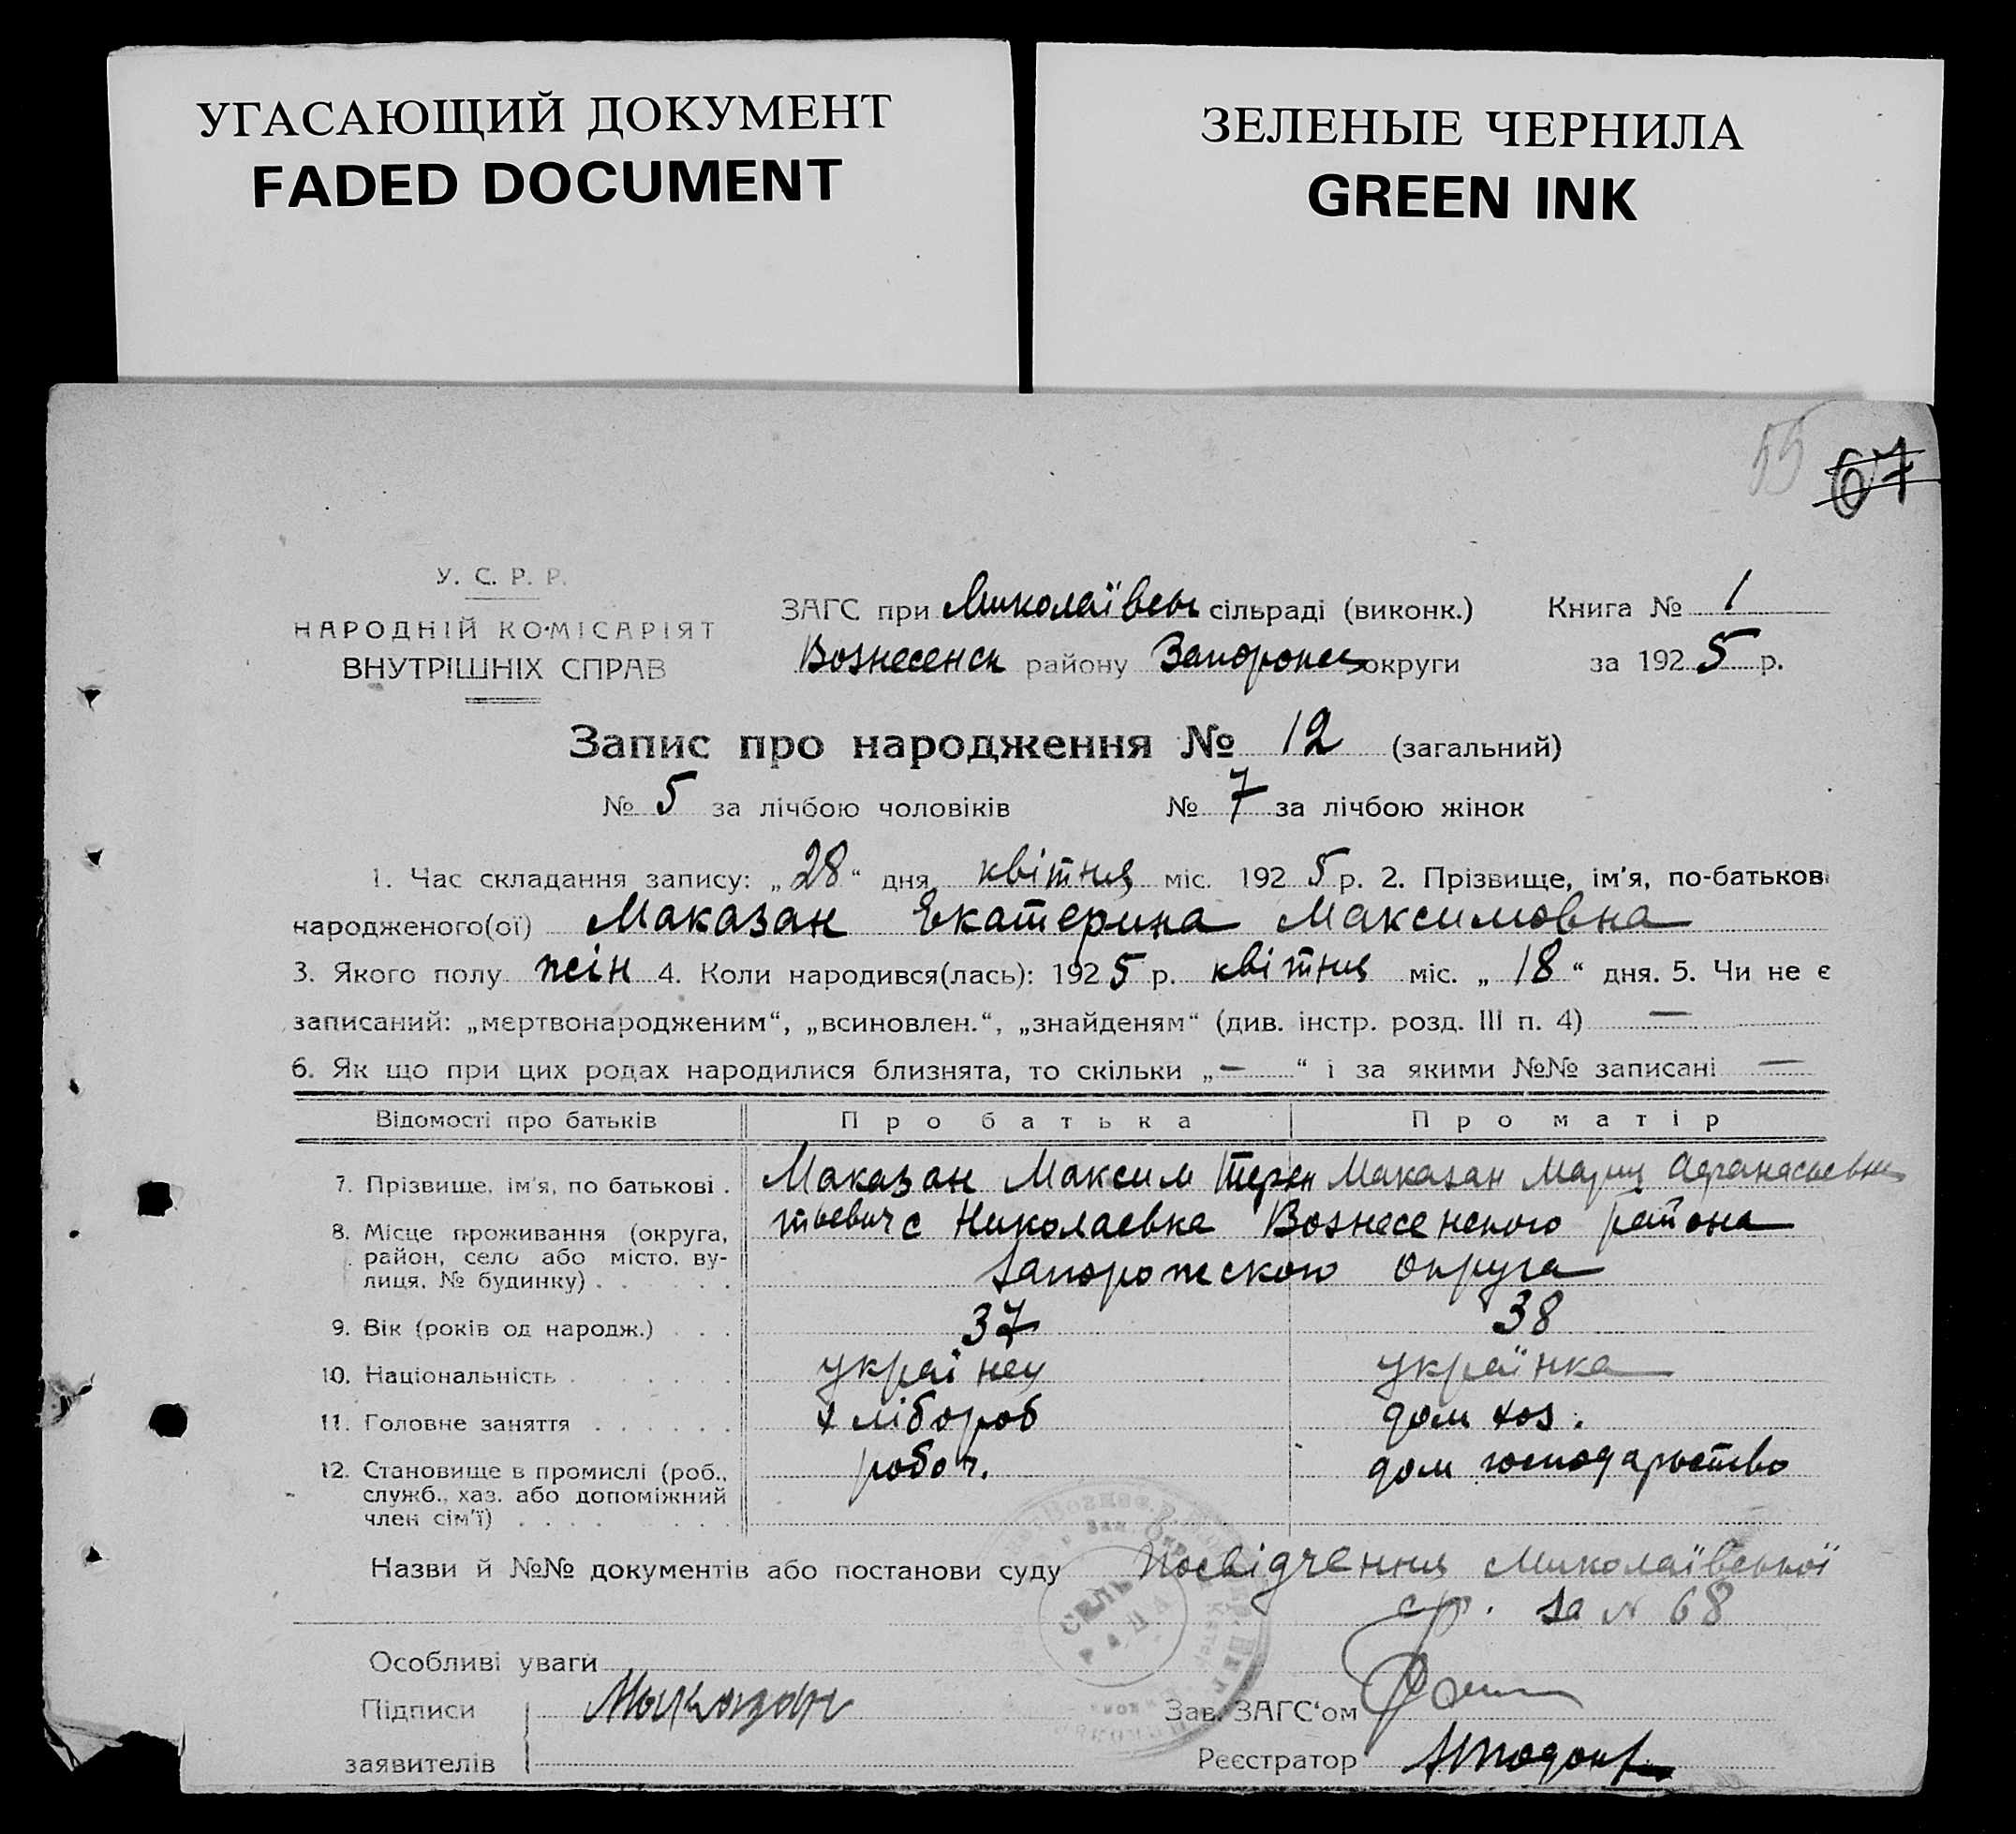 УГАСАЮЩИЙ ДОКУМЕНТ
FADED DOCUMENT
ЗЕЛЕНЫЕ ЧЕРНИЛА
GREEN INK
55 67
У. С. Р. Р.
НАРОДНІЙ КОМІСАРІЯТ
ВНУТРІШНІХ СПРАВ
ЗАГС при Миколаївськ сільраді (виконк.) Книга № 1
Вознесенск району Запорожск округи за 1925 р.
Запис про народження № 12 (загальний)
№ 5 за лічбою чоловіків № 7 за лічбою жінок
1. Час складання запису: „28“ дня квітня міс. 1925 р. 2. Прізвище, ім'я, по-батькові
народженого(ої) Маказан Екатерина Максимовна
3. Якого полу жін 4. Коли народився(лась): 1925 р. квітня міс. „18“ дня. 5. Чи не є
записаний: „мертвонародженим“, „всиновлен.“, „знайденям“ (див. інстр. розд. III п. 4) —
6. Як що при цих родах народилися близнята, то скільки „—“ і за якими №№ записані —
Відомості про батьків Про батька Про матір
7. Прізвище, ім'я, по батькові . Маказан Максим Терен Маказан Мария Афанасьевна
8. Місце проживання (округа, тьевич с Николаевка Вознесенского района
район, село або місто, ву-
лиця, № будинку) . . . . . Запорожского округа
9. Вік (років од народж.) . . . 37 38
10. Національність . . . . . . . українец українка
11. Головне заняття . . . . . . хлібороб дом хоз.
12. Становище в промислі (роб., робоч. дом господарьство
служб., хаз. або допоміжний
член сім'ї) . . . . . . . .
Назви й №№ документів або постанови суду Посвідчення Миколаївської
с/р. за N 68
СЕЛЬ
РАДА
Особливі уваги
Підписи Маказан Зав. ЗАГС'ом
заявителів Реєстратор